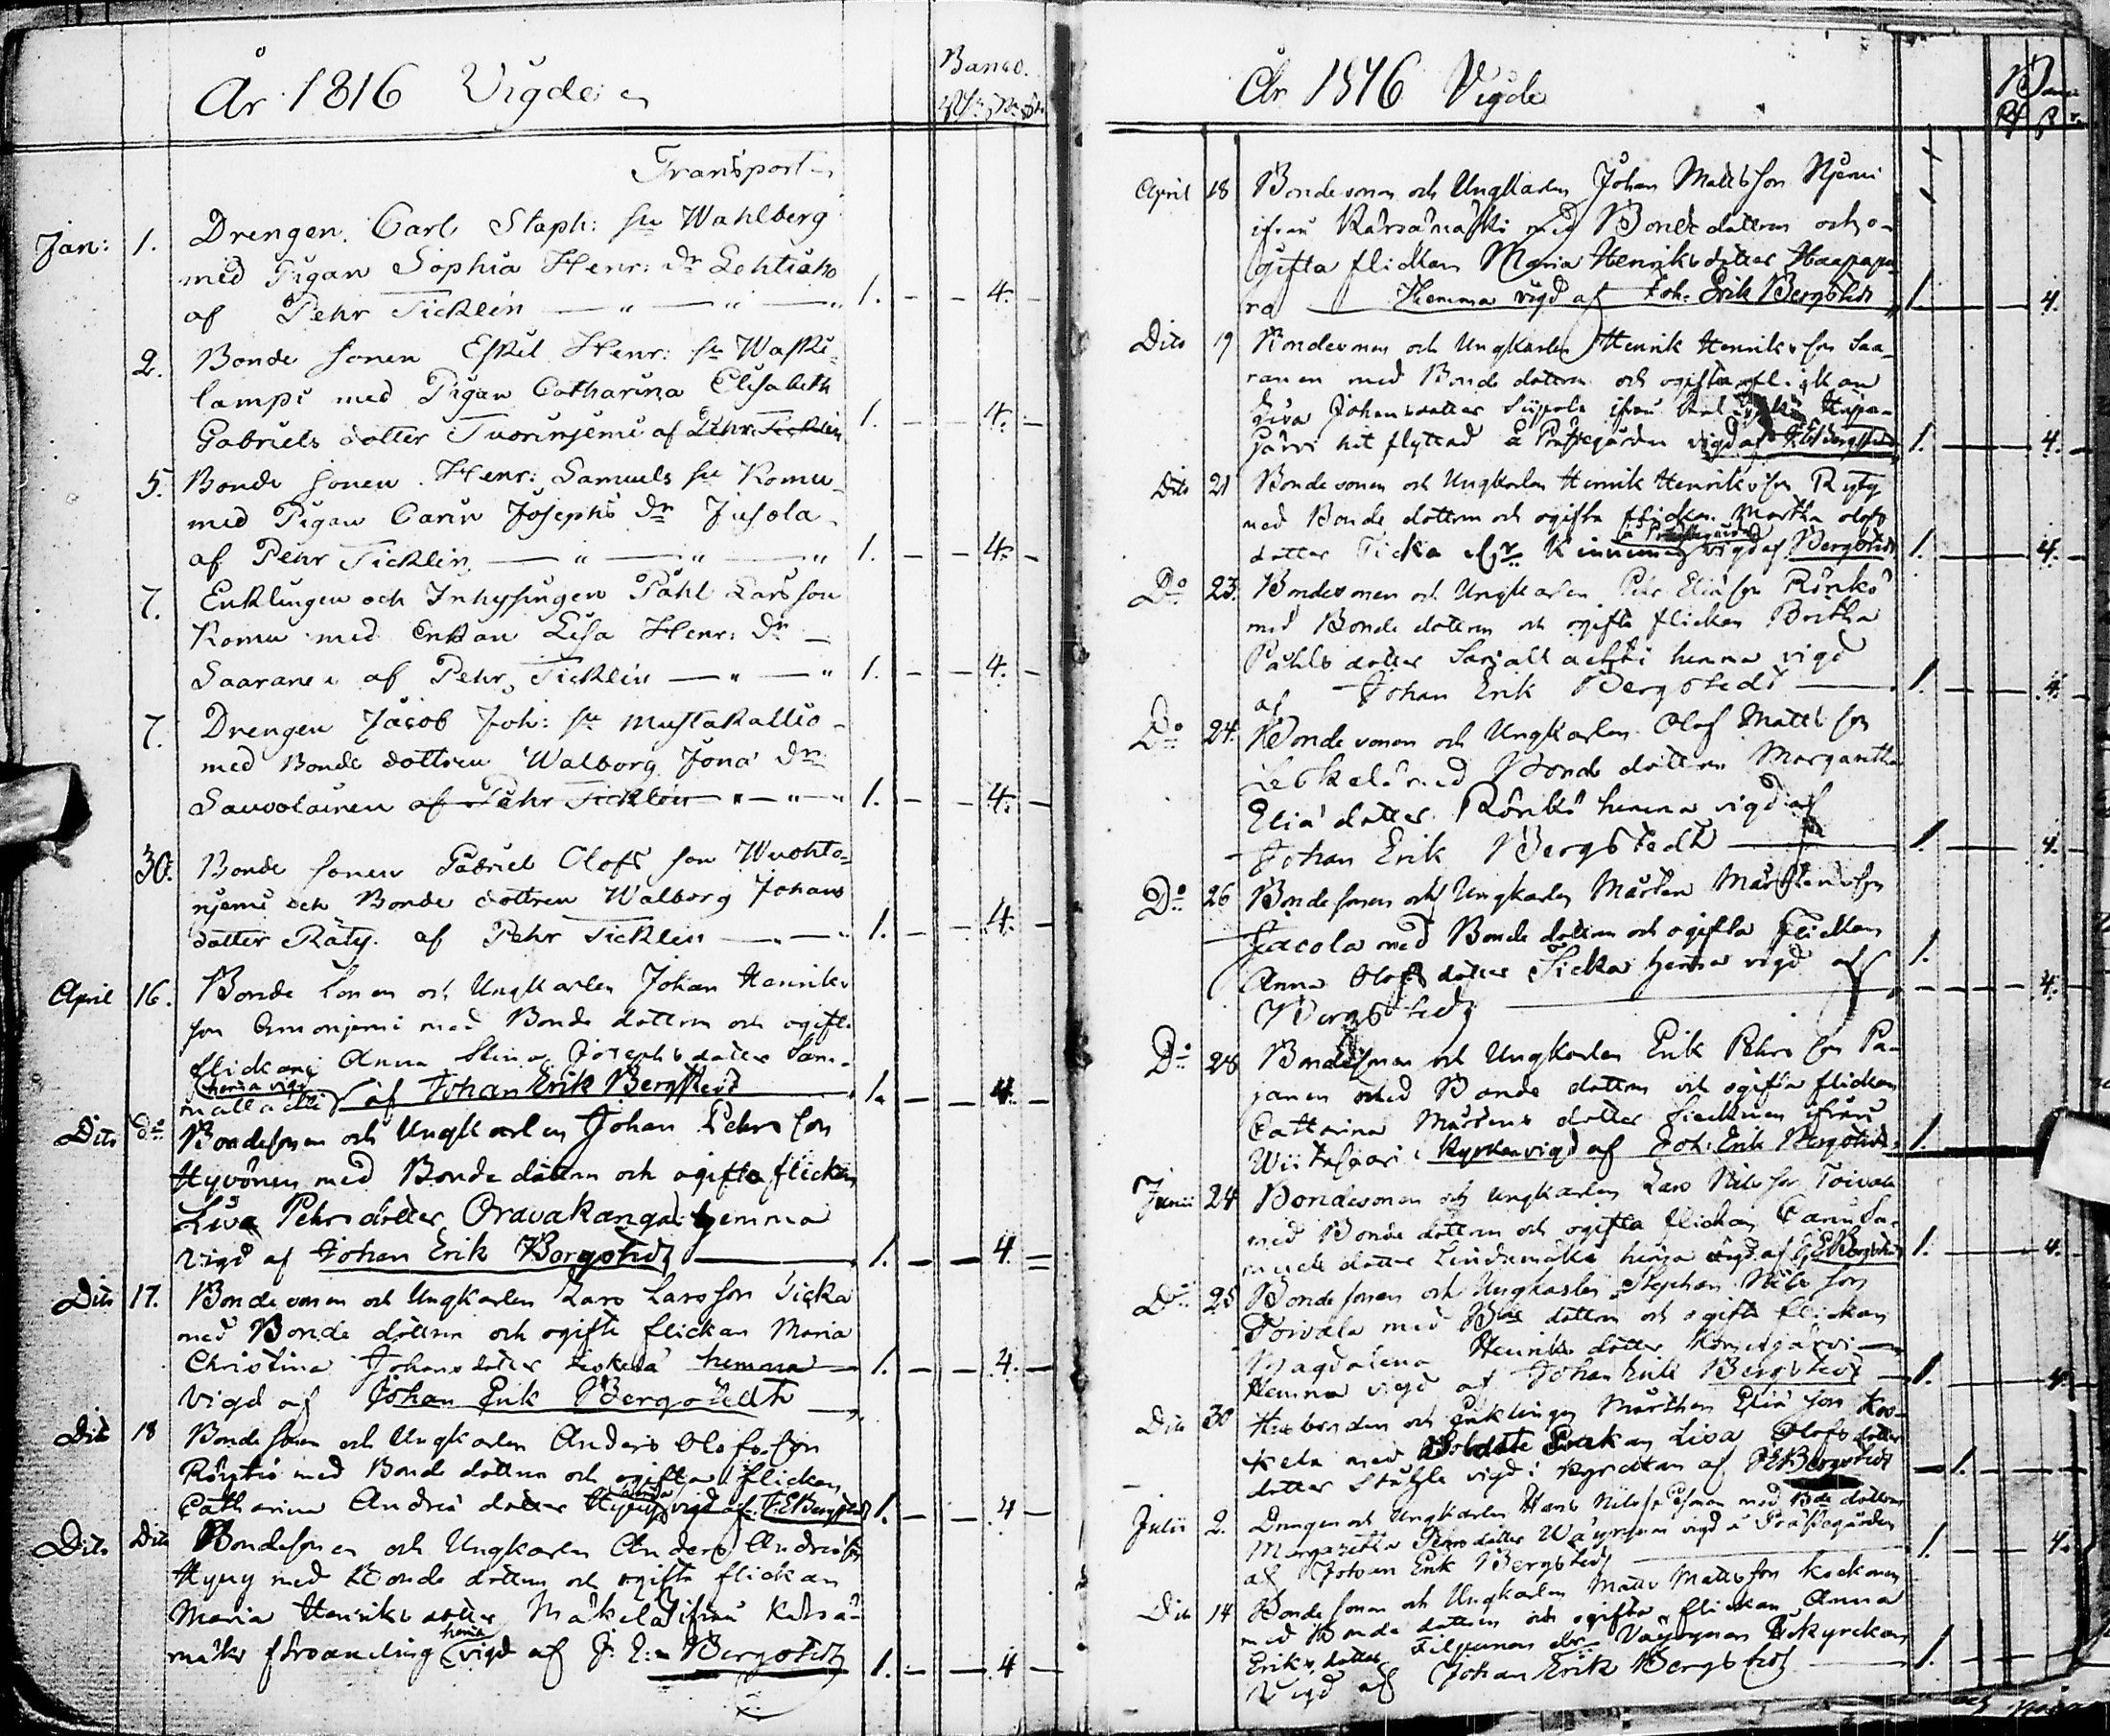 År 1816 Vigde
Banco.
Transport
Jan: 1. Drengen Carl Staph: sn Wahlberg
med Pigan Sophia Henr: dr Lehtiaho
af Pehr Ticklén 1. 4.
2. Bonde Sonen Eskel Henr: sn Waski-
lampi med Pigan Catharina Elisabeth
Gabriels dotter Tuorinjemi af Pehr Ticklén 1. 4.
5. Bonde Sonen Henr: Samuels sn Komu
med Pigan Carin Josephs dr Jusola
af Pehr Ticklén 1. 4.
7. Enklingen och Inhysingen Påhl Larsson
Komu med Enkan Lisa Henr: dr
Saaranen af Pehr Ticklén 1. 4.
7. Drengen Jacob Joh: sn Mustakallio
med Bonde dottren Walborg Jona dr
Sauvolainen af Pehr Ticklén 1. 4.
30. Bonde Sonen Gabriel Olofs son Wuohto-
njemi och Bonde dottren Walborg Johans
dotter Räty. af Pehr Ticklén 1. 4.
April 16. Bonde Sonen och Ungkarlen Johan Henriks
son Emonjemi med Bonde dottren och ogifta
flickan Anna Stina Josephs dotter Sam-
hema vigd
mallachti af Johan Erik Bergstedt 1. 4.
Dito do Bondesonen och Ungkarlen Johan Pehrs son
Hyvönen med Bonde dottren och ogifta flickan
Lisa Pehrs dotter Oravakangas hemma
vigd af Johan Erik Bergstedt 1. 4.
Dito 17. Bonde sonen och Ungkarlen Lars Larsson Ticka
med Bonde dottren och ogifta flickan Maria
Christina Johans dotter Leskelä hemma 1. 4.
vigd af Johan Erik Bergstedt
Dito 18 Bonde sonen och Ungkarlen Anders Olofsson
Röytiö med Bonde dottren och ogifta flickan
Catharina Andrs dotter Hyyry vigd af J: E Bergstedt 1. 4
Dito Dito Bondesonen och Ungkarlen Anders Andersson
Hyyry med Bonde dottren och ogifta flickan
Maria Henriks dotter Mäkelä ifrån Kärsä-
hema
mäki församling vigd af J: E: Bergstedt 1. 4
År 1816 Vigde
April 18 Bondesonen och Ungkarlen Johan Mattsson Njemi
ifrån Kärsämäki med Bonde dottren och o-
gifta flickan Maria Henriks dotter Haapapu-
ro Hemma vigd af Joh: Erik Bergstedt 1. 4.
Dito 19 Bondesonen och Ungkarlen Henrik Henriksson Saa-
ranen med Bonde dottren och ogifta flickan
Lisa Johans dotter Sijpola ifrån Haapa-
järvi hit flyttad å Prästegården vigd af J: E: Bergstedt 1. 4.
Dito 21 Bonde sonen och Ungkarlen Henrik Henriksson Ryty
med Bonde dottren och ogifta flickan Martha Olofs
å Prästegården
dotter Ticka vigd af Bergstedt 1. 4.
Do 23. Bondesonen och Ungkarlen Pehr Eliasson Rönkö
med Bonde dottren och ogifta flickan Britha
Påhls dotter Sarjallachti hemma vigd
af Johan Erik Bergstedt 1. 4.
Do 24. Bonde sonen och Ungkarlen Olof Mattsson
Leskelä med Bonde dottren Margaretha
Eliä dotter Rönkö hemma vigd af
Johan Erik Bergstedt 1. 4.
Do 26 Bonde sonen och Ungkarlen Mårten Mårtensson
Jacola med Bonde dottren och ogifta flickan 1.
Anna Olofs dotter Ticka hemma vigd af 4.
Bergstedt
Do 28 Bondesonen och Ungkarlen Erik Pehrs son Pa-
janen med Bonde dottren och ogifta flickan
Catharina Mårtens dotter ifrån
Wiitasaari i Kyrkan vigd af Joh: Erik Bergstedt 1.
Junii 24 Bondesonen och Ungkarlen Lars Nilsson Toivola
med Bonde dottren och ogifta flickan Carin Sa-
muels dotter Lindemäki hema vigd af J: E Bergstedt 1. 4.
Do 25 Bonde sonen och Ungkarlen Stephan Nils son
Toivola med Bde dottren och ogifta flickan
Magdalena Henriks dotter
Hemma vigd af Johan Erik Bergstedt 1. 4.
Dito 30 Husbonden och Enklingen Mårthen Eliä son Kos-
kela med Soldate Enkan Lisa Olofs dotter
dotter vigd i kyrckan af J E Bergstedt 1.
Julii 2. Drengen och Ungkarlen Hans Nilsson med Bde dottren
Margaretha Pehrs dotter Wäyrynen vigd i Prästegården
af Johan Erik Bergstedt 1. 4.
Dito 14 Bonde sonen och Ungkarlen Matts Mattsson Kockonen
med Bonde dottren och ogifta flickan Anna
Eriks dotter Väyrynen i kyrckan
Vigd af Johan Erik Bergstedt 1.